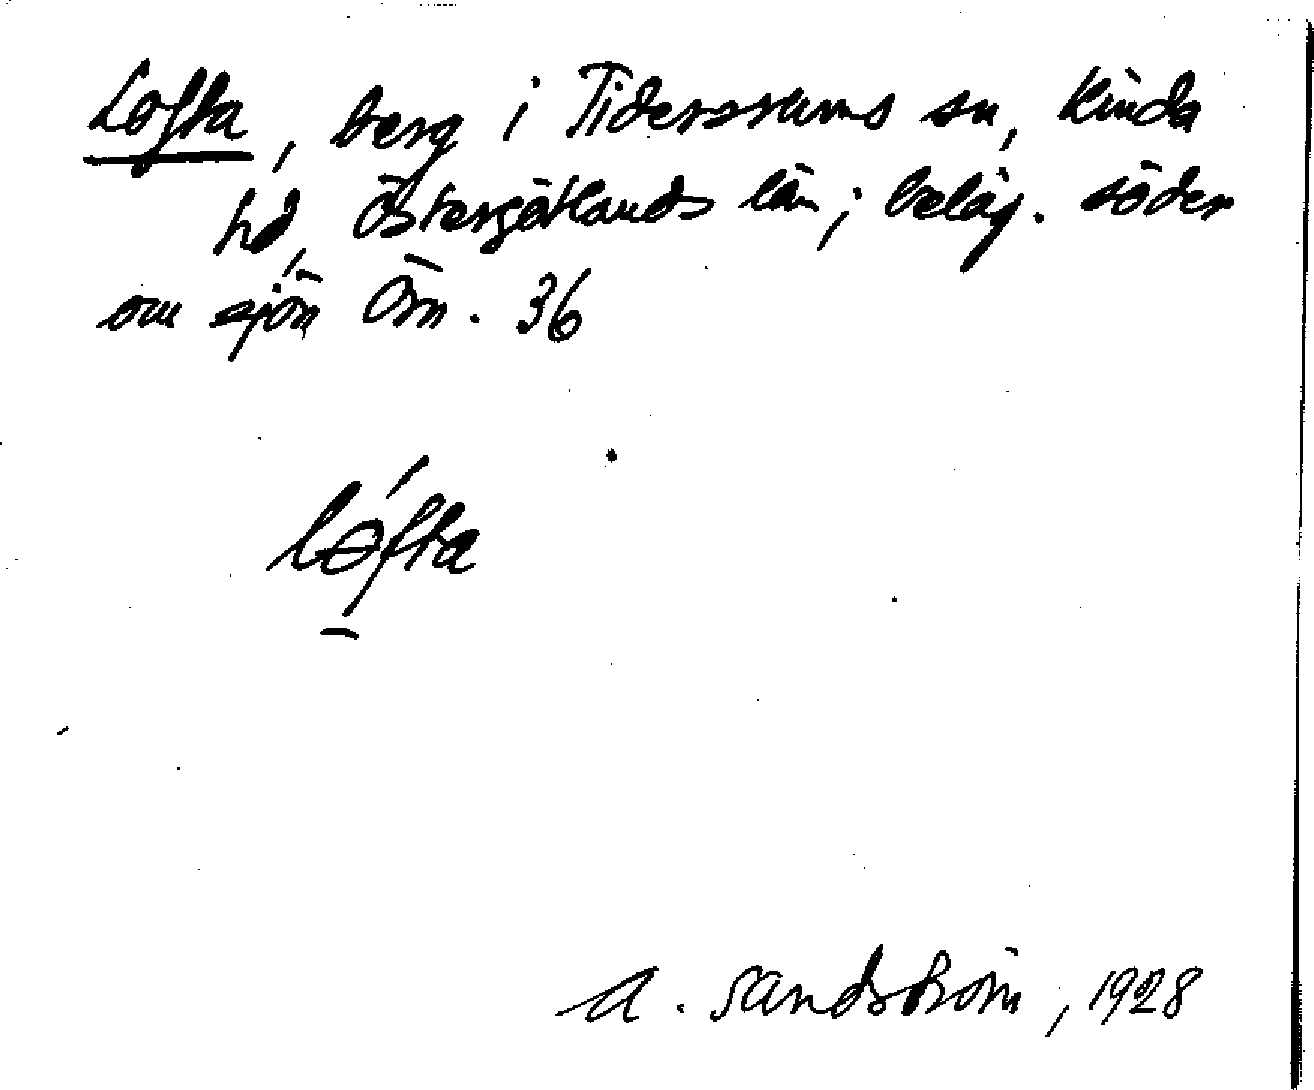 Lofta, berg i Tidersrums sn, Kinda
hd, Östergötlands län; beläg. söder
om sjön Ön. 36
lǝ́fta
A. Sandström, 1928